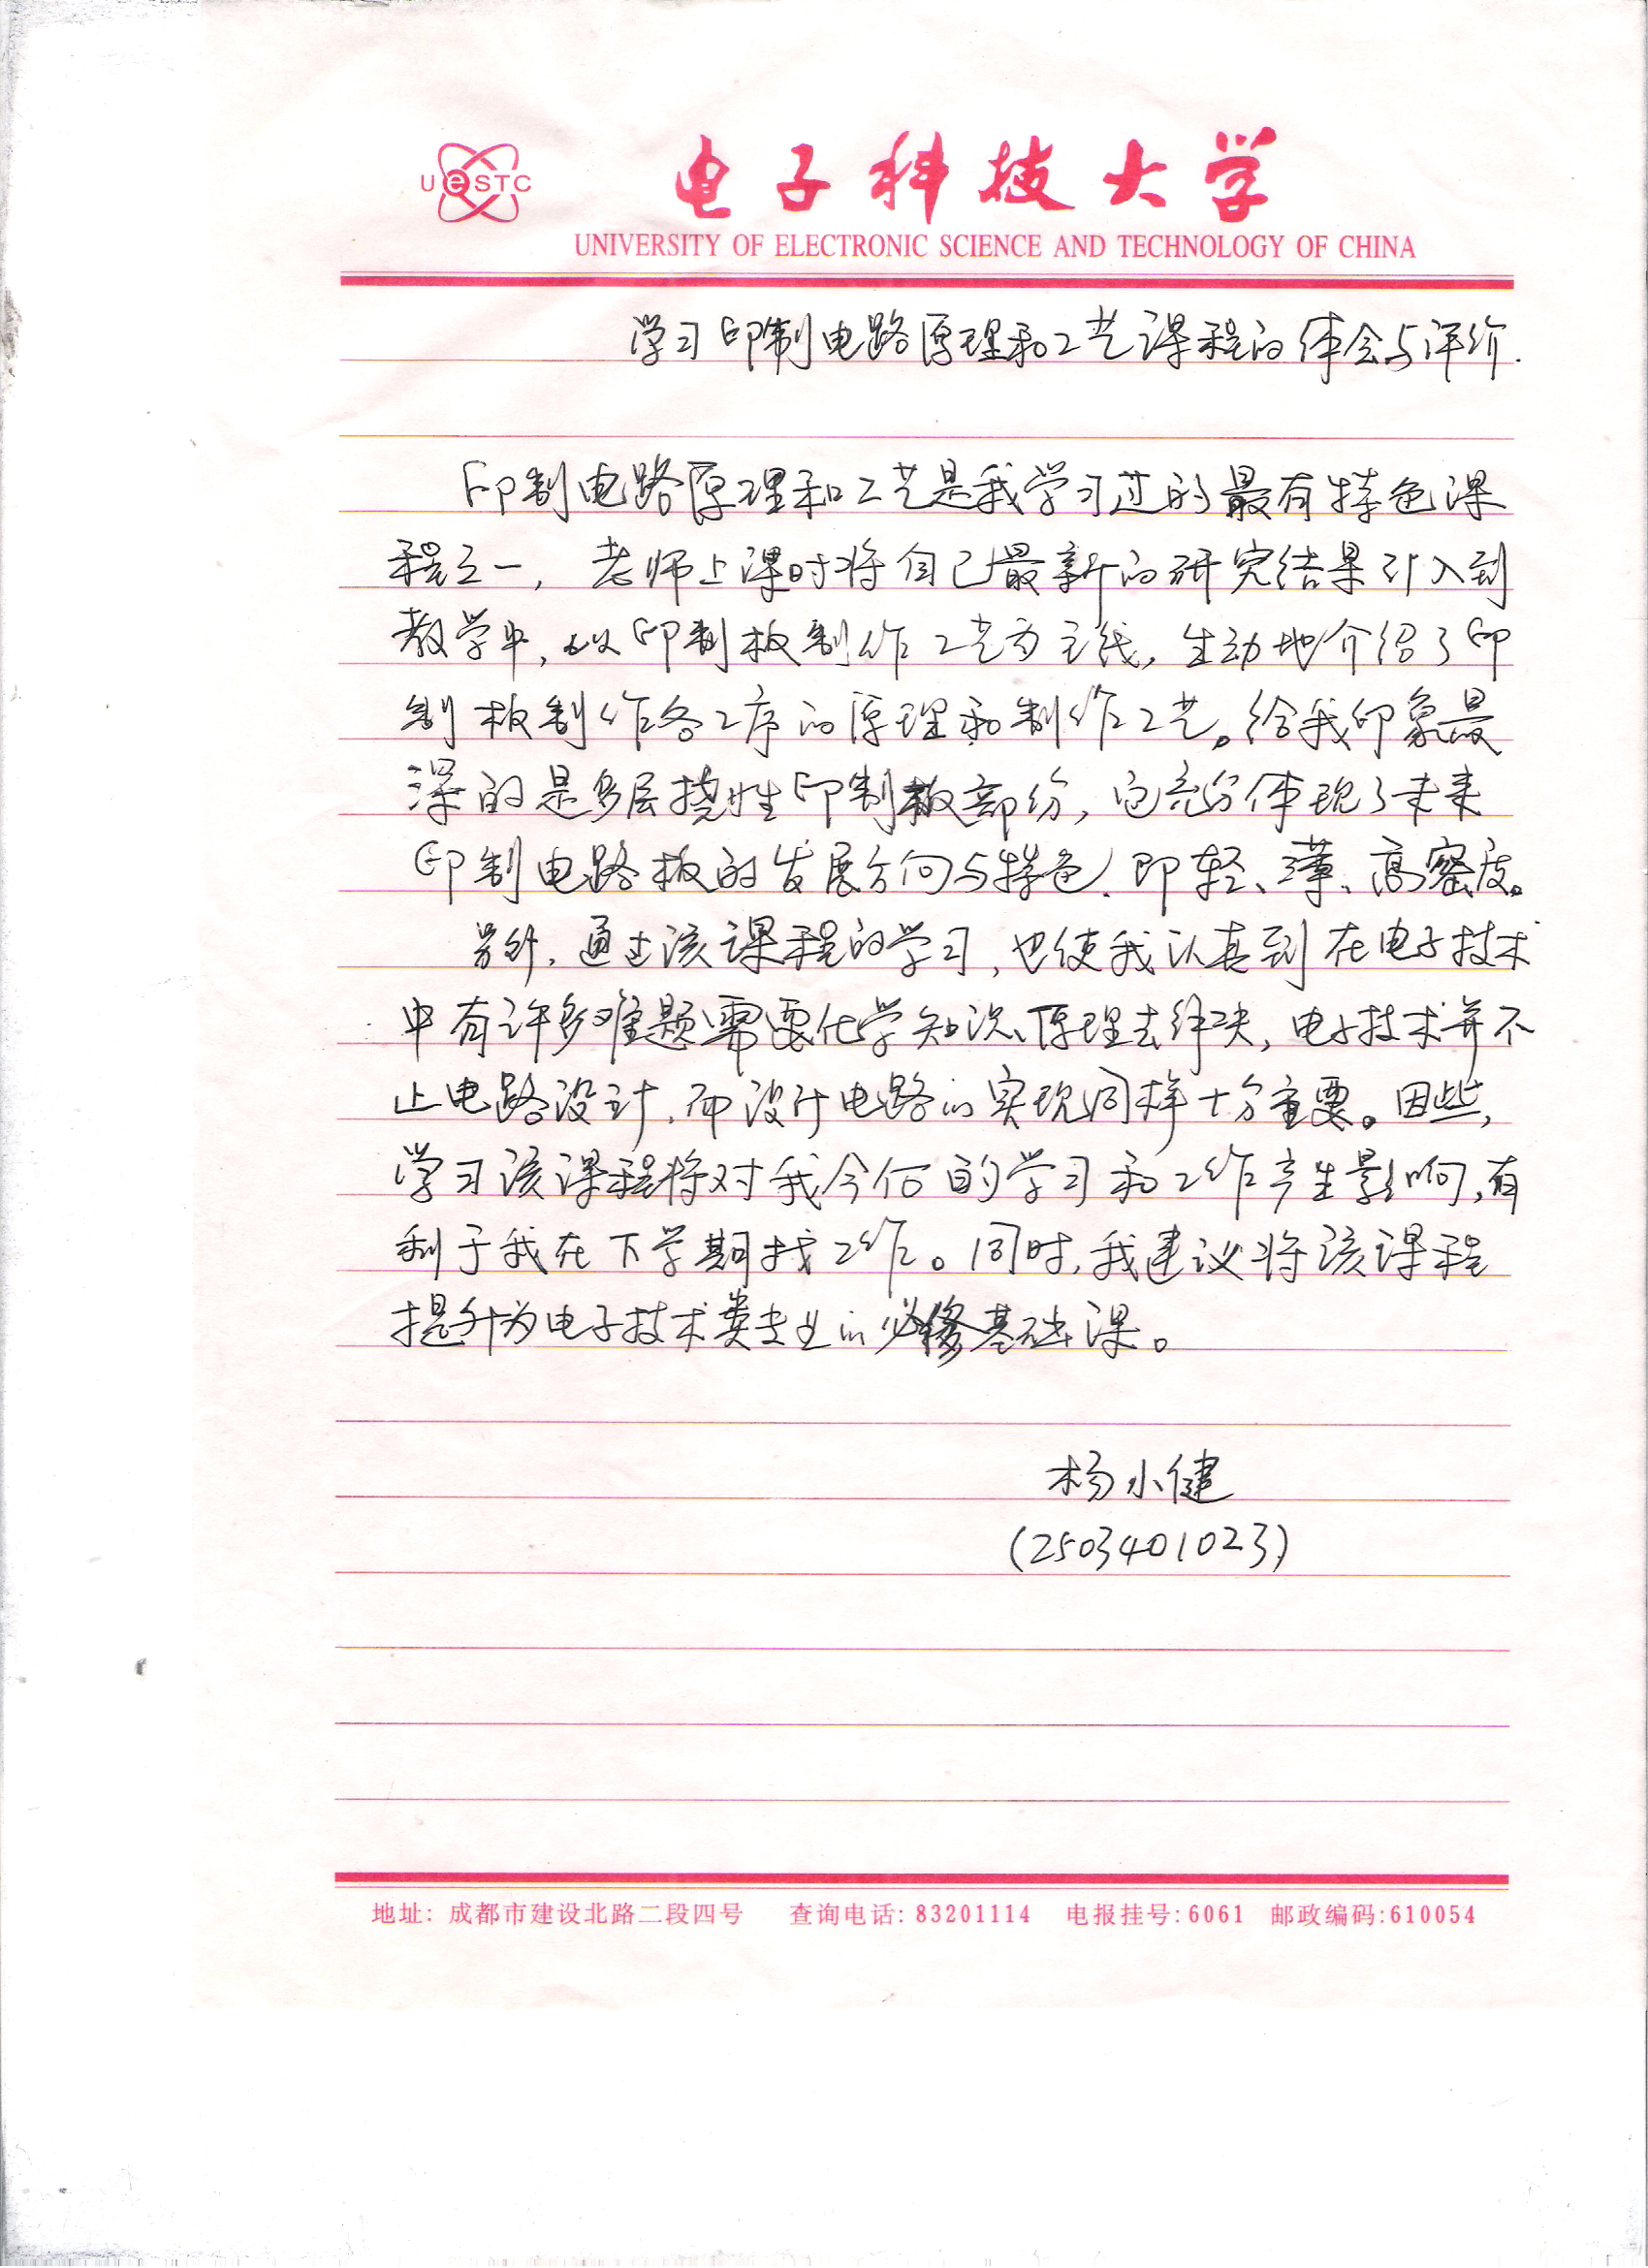 UeSTC
电子科技大学
UNIVERSITY OF ELECTRONIC SCIENCE AND TECHNOLOGY OF CHINA
学习印制电路原理和工艺课程的体会与评价.
印制电路原理和工艺是我学习过的最有特色课
程之一，老师上课时将自己最新的研究结果引入到
教学中，以印制板制作工艺为主线，生动地介绍了印
制板制作各工序的原理和制作工艺。给我印象最
深的是多层挠性印制板部份，它充分体现了未来
印制电路板的发展方向与特色，即轻、薄、高密度。
另外，通过该课程的学习，也使我认真到在电子技术
中有许多难题需要化学知识、原理去解决，电子技术并不
止电路设计，而设计电路的实现同样十分重要。因些，
学习该课程将对我今后的学习和工作产生影响，有
利于我在下学期找工作。同时，我建议将该课程
提升为电子技术类专业的必修基础课。
杨小健
(2503401023)
地址: 成都市建设北路二段四号 查询电话: 83201114 电报挂号: 6061 邮政编码: 610054